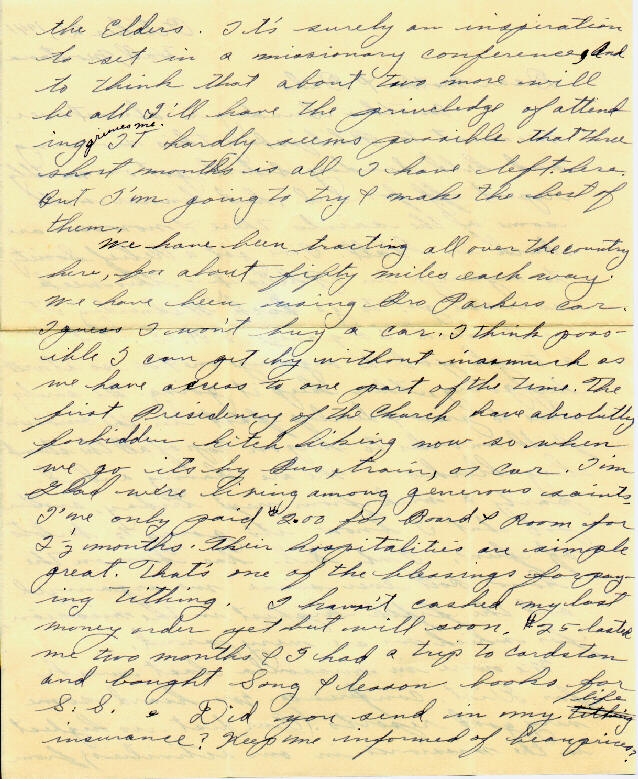 the Elders. It's surely an inspiration
to set in a missionary conference, And
to think that about two more will
be all I'll have the priveledge of attend
ing grieves me. IT hardly seems possible that three
short months is all I have left here.
But I'm going to try & make the best of
them.
We have been tracting all over the country
here, for about fifty miles each way.
We have been using Bro Parkers car.
I guess I won't buy a car. I think poss-
ible I can get by without inasmuch as
we have access to one part of the time. The
first Presidency of the Church have absolutly
forbidden hitch hiking now so when
we go its by Bus, train, or car. I'm
Glad we're living among generous saints.
I've only paid $2.00 for Board & Room for
2 1/2 months. Their hospitalities are simple
great. That's one of the blessings for pay-
ing Tithing. I havn't cashed my last
money order yet but will soon. $25 lasted
me two months & I had a trip to Cardston
and bought Song & lesson books for
S.S. Did you send in my tithing life
insurance? Keep me informed of beau prices?